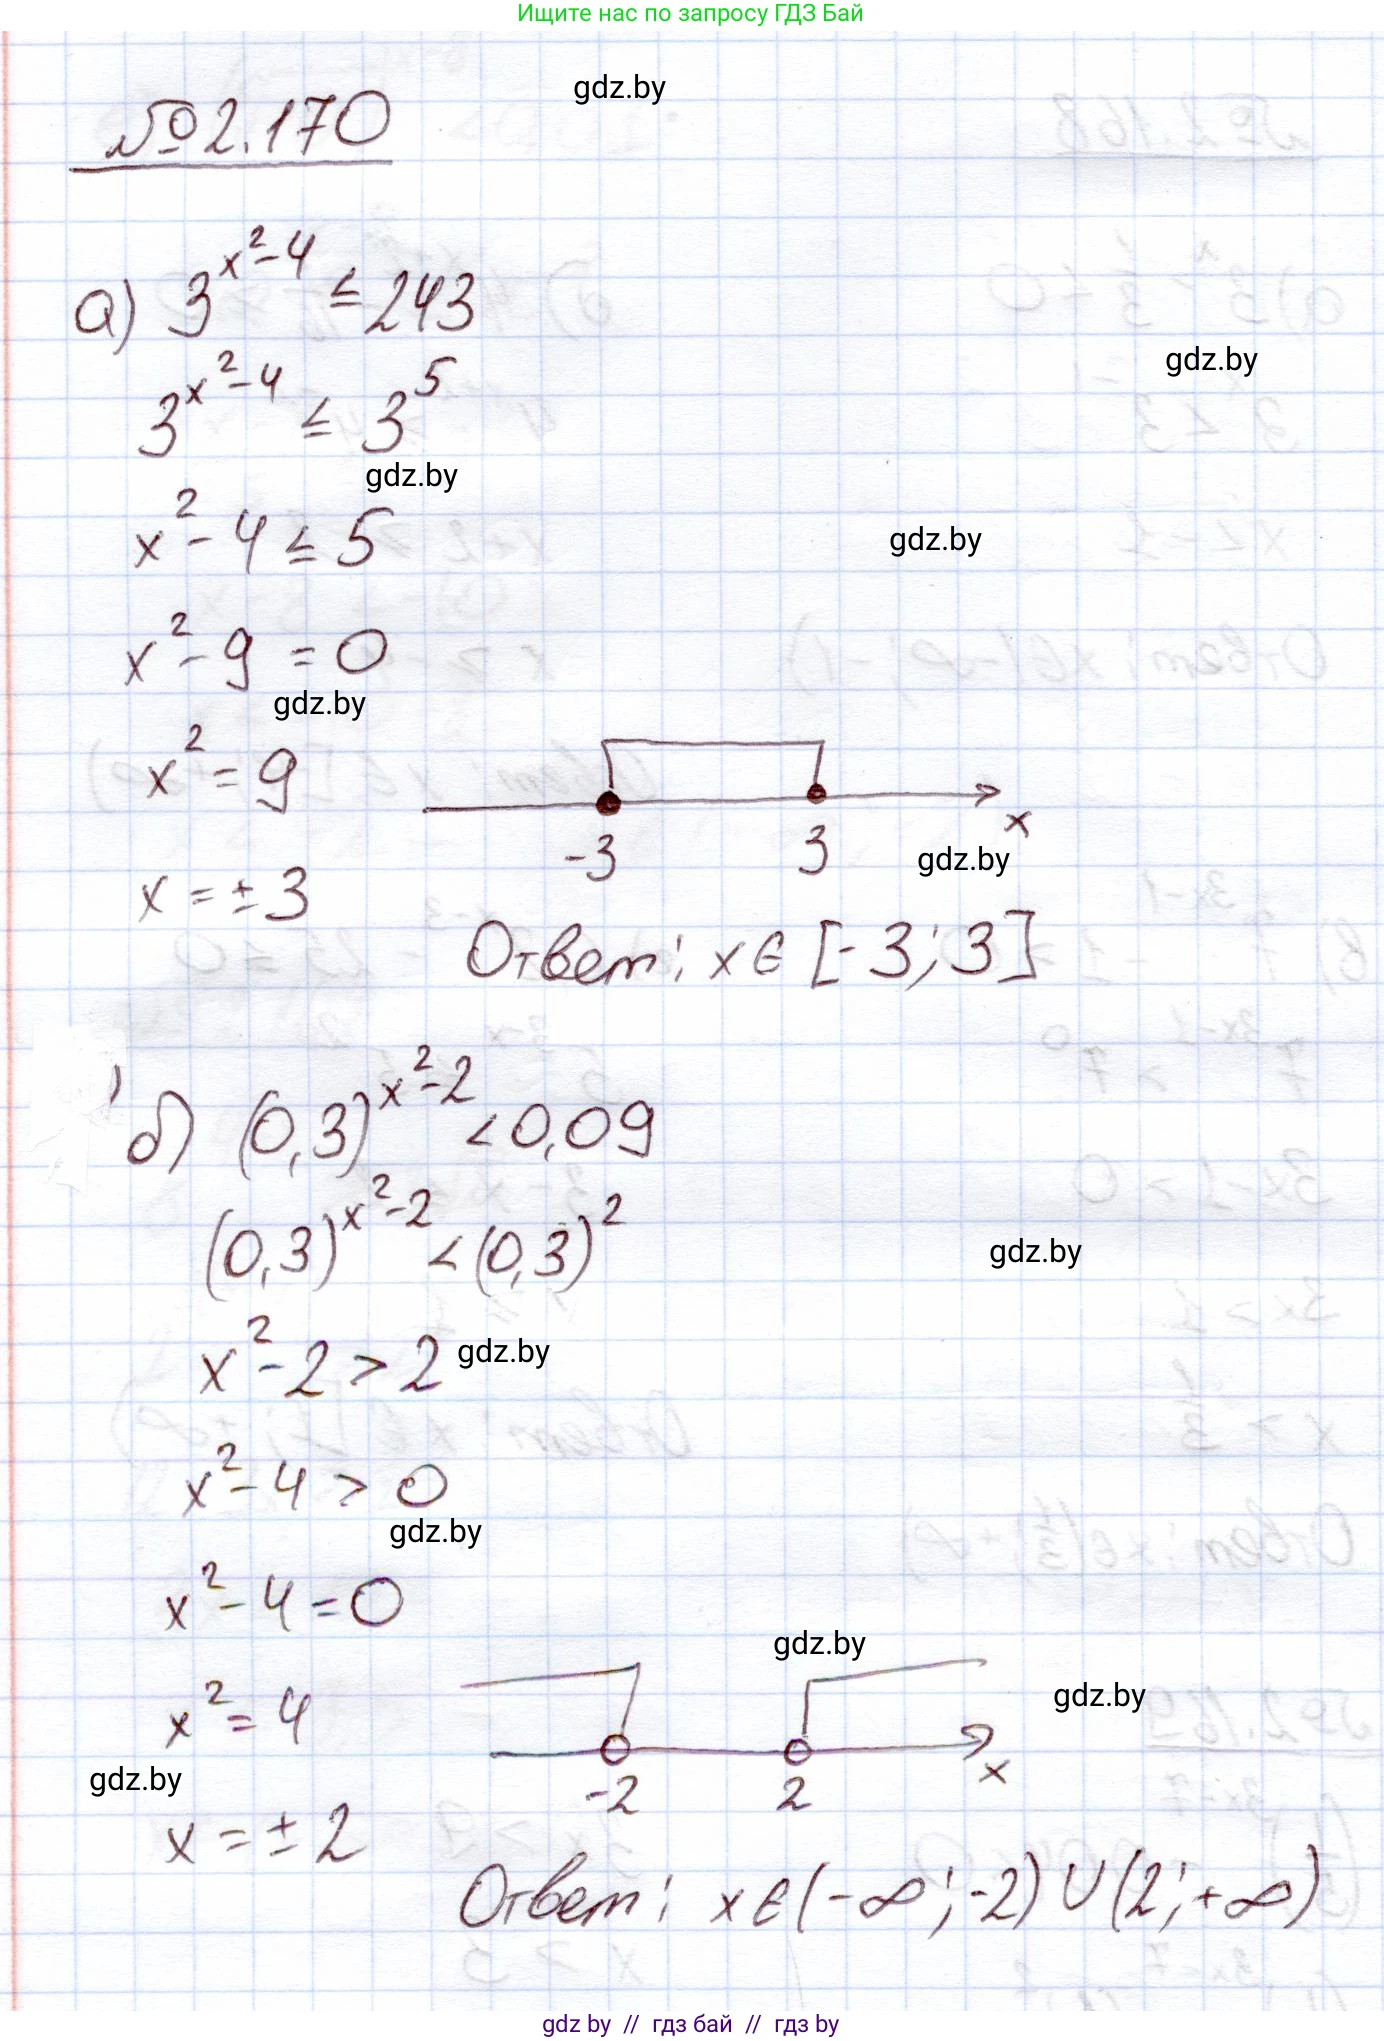 Ищите нас по запросу ГДЗ Бай
gdz.by
№2.170
а) 3^(x²-4) ≤ 243
gdz.by
3^(x²-4) ≤ 3^5
gdz.by
x² - 4 ≤ 5
gdz.by
x² - 9 = 0
gdz.by
x² = 9
-3 3 x
gdz.by
x = ± 3
Ответ: x ∈ [-3; 3]
б) (0,3)^(x²-2) < 0,09
(0,3)^(x²-2) < (0,3)²
gdz.by
x² - 2 > 2
gdz.by
x² - 4 > 0
gdz.by
x² - 4 = 0
gdz.by
gdz.by
x² = 4
gdz.by
-2 2 x
x = ± 2
Ответ: x ∈ (-∞; -2) ∪ (2; +∞)
gdz.by // гдз бай // гдз by